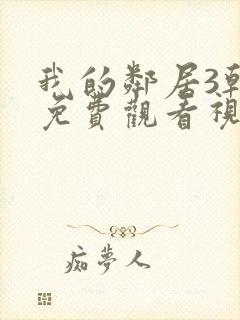 我的鄰居3
免費觀看視
痴夢人